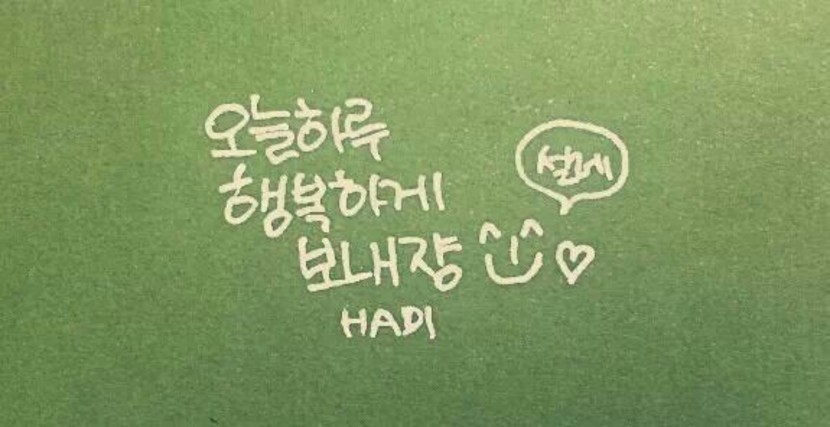 오늘하루
행복하게
보내쟝
HADI